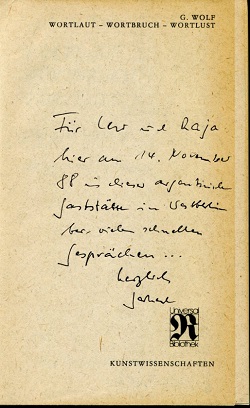 G. WOLF
WORTLAUT – WORTBRUCH – WORTLUST
Für und Raja
hier am 14. November
88 in dieser argentinischen
Gaststätte in Westberlin
bei vielen schnellen
Gesprächen ...
herzlich
Gerhard
Universal
Bibliothek
KUNSTWISSENSCHAFTEN